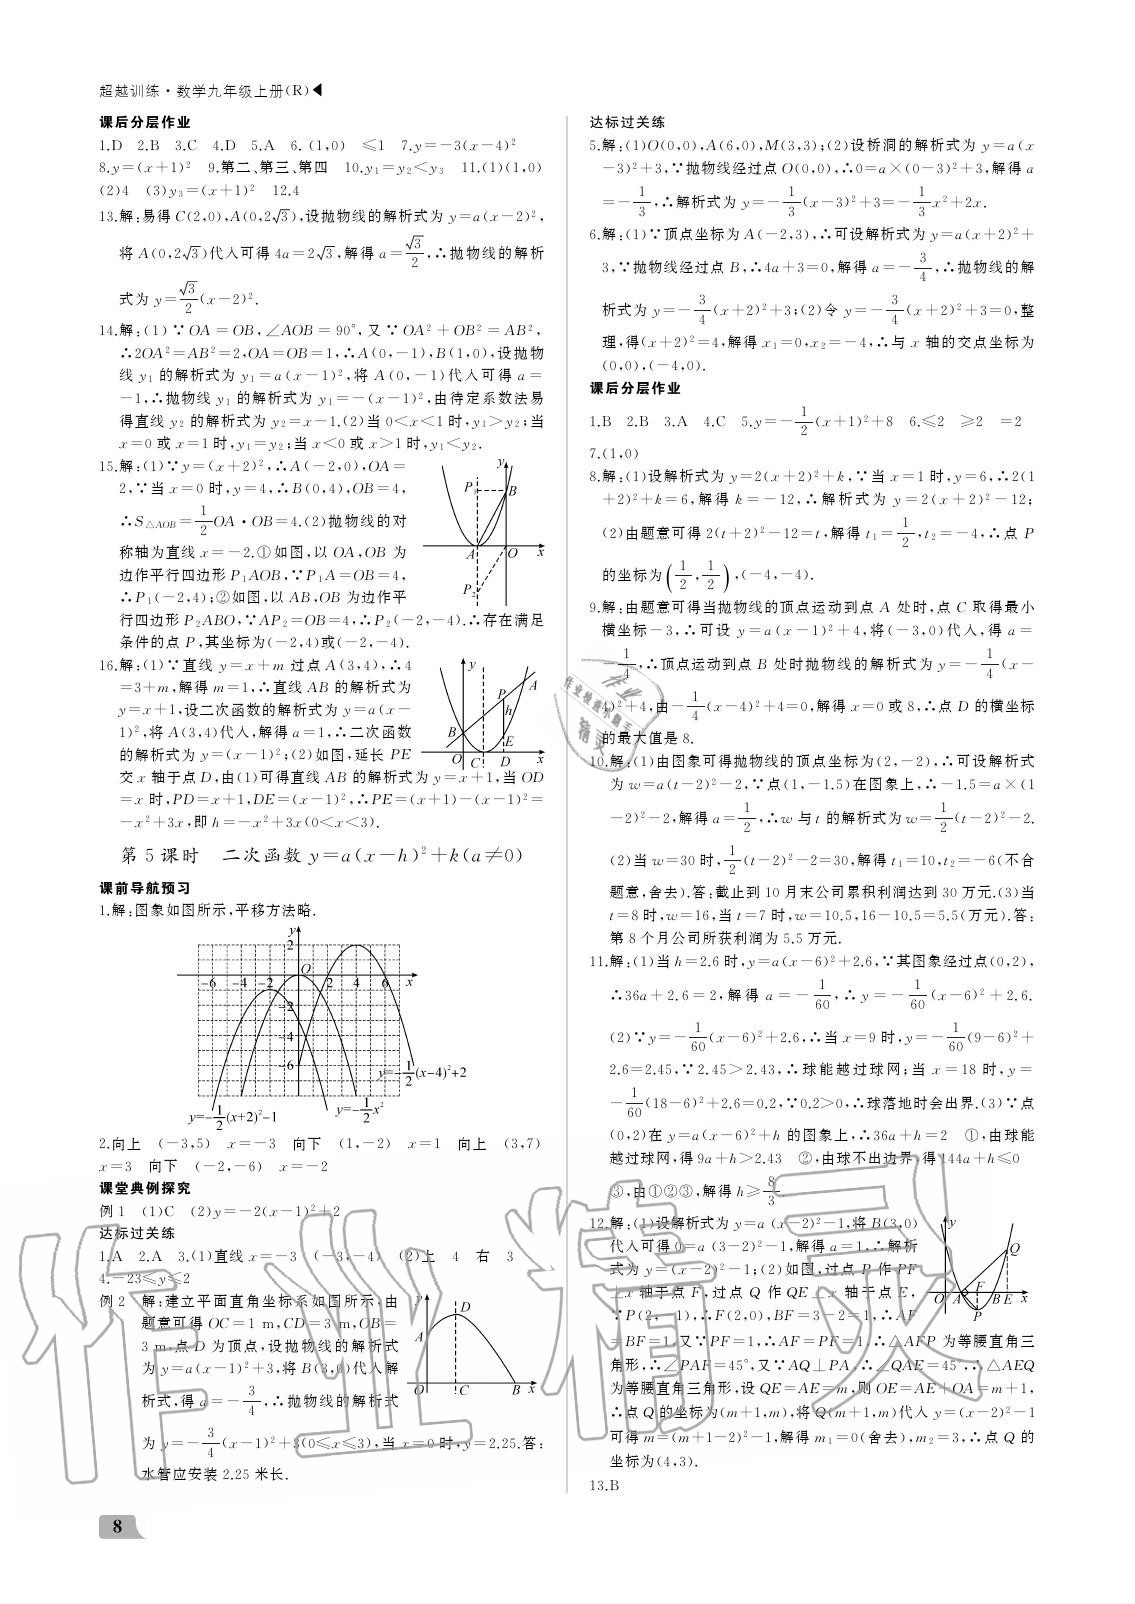 超越训练·数学九年级上册(R)◀
课后分层作业
1.D 2.B 3.C 4.D 5.A 6.(1,0) ≤1 7.y=-3(x-4)²
8.y=(x+1)² 9.第二、第三、第四 10.y₁=y₂<y₃ 11.(1)(1,0)
(2)4 (3)y₃=(x+1)² 12.4
13.解:易得C(2,0),A(0,2√3),设抛物线的解析式为y=a(x-2)²,
将A(0,2√3)代入可得4a=2√3,解得a=√3/2,∴抛物线的解析
式为y=√3/2(x-2)².
14.解:(1)∵OA=OB,∠AOB=90°,又∵OA²+OB²=AB²,
∴2OA²=AB²=2,OA=OB=1,∴A(0,-1),B(1,0),设抛物
线y₁的解析式为y₁=a(x-1)²,将A(0,-1)代入可得a=
-1,∴抛物线y₁的解析式为y₁=-(x-1)²,由待定系数法易
得直线y₂的解析式为y₂=x-1.(2)当0<x<1时,y₁>y₂;当
x=0或x=1时,y₁=y₂;当x<0或x>1时,y₁<y₂.
15.解:(1)∵y=(x+2)²,∴A(-2,0),OA=
2,∵当x=0时,y=4,∴B(0,4),OB=4,
∴S△AOB=1/2OA·OB=4.(2)抛物线的对
称轴为直线x=-2.①如图,以OA,OB为
边作平行四边形P₁AOB,∵P₁A=OB=4,
∴P₁(-2,4);②如图,以AB,OB为边作平
行四边形P₂ABO,∵AP₂=OB=4,∴P₂(-2,-4).∴存在满足
条件的点P,其坐标为(-2,4)或(-2,-4).
y
P₁
B
A
O
x
P₂
16.解:(1)∵直线y=x+m过点A(3,4),∴4
=3+m,解得m=1,∴直线AB的解析式为
y=x+1,设二次函数的解析式为y=a(x-
1)²,将A(3,4)代入,解得a=1,∴二次函数
的解析式为y=(x-1)²;(2)如图,延长PE
交x轴于点D,由(1)可得直线AB的解析式为y=x+1,当OD
=x时,PD=x+1,DE=(x-1)²,∴PE=(x+1)-(x-1)²=
-x²+3x,即h=-x²+3x(0<x<3).
y
A
P
h
B
E
O C D x
第5课时 二次函数y=a(x-h)²+k(a≠0)
课前导航预习
1.解:图象如图所示,平移方法略.
y
2
O
-6 -4 -2 2 4 6 x
-2
-4
-6
y=-1/2(x-4)²+2
y=-1/2(x+2)²-1
y=-1/2x²
2.向上 (-3,5) x=-3 向下 (1,-2) x=1 向上 (3,7)
x=3 向下 (-2,-6) x=-2
课堂典例探究
例1 (1)C (2)y=-2(x-1)²+2
达标过关练
1.A 2.A 3.(1)直线x=-3 (-3,-4) (2)上 4 右 3
4.-23≤y≤2
例2 解:建立平面直角坐标系如图所示,由
题意可得OC=1 m,CD=3 m,OB=
3 m,点D为顶点,设抛物线的解析式
为y=a(x-1)²+3,将B(3,0)代入解
析式,得a=-3/4,∴抛物线的解析式
为y=-3/4(x-1)²+3(0≤x≤3),当x=0时,y=2.25.答:
水管应安装2.25米长.
y
D
A
O C B x
8
达标过关练
5.解:(1)O(0,0),A(6,0),M(3,3);(2)设桥洞的解析式为y=a(x
-3)²+3,∵抛物线经过点O(0,0),∴0=a×(0-3)²+3,解得a
=-1/3,∴解析式为y=-1/3(x-3)²+3=-1/3x²+2x.
6.解:(1)∵顶点坐标为A(-2,3),∴可设解析式为y=a(x+2)²+
3,∵抛物线经过点B,∴4a+3=0,解得a=-3/4,∴抛物线的解
析式为y=-3/4(x+2)²+3;(2)令y=-3/4(x+2)²+3=0,整
理,得(x+2)²=4,解得x₁=0,x₂=-4,∴与x轴的交点坐标为
(0,0),(-4,0).
课后分层作业
1.B 2.B 3.A 4.C 5.y=-1/2(x+1)²+8 6.≤2 ≥2 =2
7.(1,0)
8.解:(1)设解析式为y=2(x+2)²+k,∵当x=1时,y=6,∴2(1
+2)²+k=6,解得k=-12,∴解析式为y=2(x+2)²-12;
(2)由题意可得2(t+2)²-12=t,解得t₁=1/2,t₂=-4,∴点P
的坐标为(1/2,1/2),(-4,-4).
9.解:由题意可得当抛物线的顶点运动到点A处时,点C取得最小
横坐标-3,∴可设y=a(x-1)²+4,将(-3,0)代入,得a=
-1/4,∴顶点运动到点B处时抛物线的解析式为y=-1/4(x-
4)²+4,由-1/4(x-4)²+4=0,解得x=0或8,∴点D的横坐标
的最大值是8.
10.解:(1)由图象可得抛物线的顶点坐标为(2,-2),∴可设解析式
为w=a(t-2)²-2,∵点(1,-1.5)在图象上,∴-1.5=a×(1
-2)²-2,解得a=1/2,∴w与t的解析式为w=1/2(t-2)²-2.
(2)当w=30时,1/2(t-2)²-2=30,解得t₁=10,t₂=-6(不合
题意,舍去).答:截止到10月末公司累积利润达到30万元.(3)当
t=8时,w=16,当t=7时,w=10.5,16-10.5=5.5(万元).答:
第8个月公司所获利润为5.5万元.
11.解:(1)当h=2.6时,y=a(x-6)²+2.6,∵其图象经过点(0,2),
∴36a+2.6=2,解得a=-1/60,∴y=-1/60(x-6)²+2.6.
(2)∵y=-1/60(x-6)²+2.6,∴当x=9时,y=-1/60(9-6)²+
2.6=2.45,∵2.45>2.43,∴球能越过球网;当x=18时,y=
-1/60(18-6)²+2.6=0.2,∵0.2>0,∴球落地时会出界.(3)∵点
(0,2)在y=a(x-6)²+h的图象上,∴36a+h=2 ①,由球能
越过球网,得9a+h>2.43 ②,由球不出边界,得144a+h≤0
③,由①②③,解得h≥8/3.
12.解:(1)设解析式为y=a(x-2)²-1,将B(3,0)
代入可得0=a(3-2)²-1,解得a=1,∴解析
式为y=(x-2)²-1;(2)如图,过点P作PF
⊥x轴于点F,过点Q作QE⊥x轴于点E,
∵P(2,-1),∴F(2,0),BF=3-2=1,∴AF
=BF=1,又∵PF=1,∴AF=PF=1,∴△AFP为等腰直角三
角形,∴∠PAF=45°,又∵AQ⊥PA,∴∠QAE=45°,∴△AEQ
为等腰直角三角形,设QE=AE=m,则OE=AE+OA=m+1,
∴点Q的坐标为(m+1,m),将Q(m+1,m)代入y=(x-2)²-1
可得m=(m+1-2)²-1,解得m₁=0(舍去),m₂=3,∴点Q的
坐标为(4,3).
y
Q
F
O A B E x
P
13.B
作业精灵
作业检查小助手
作业
精灵